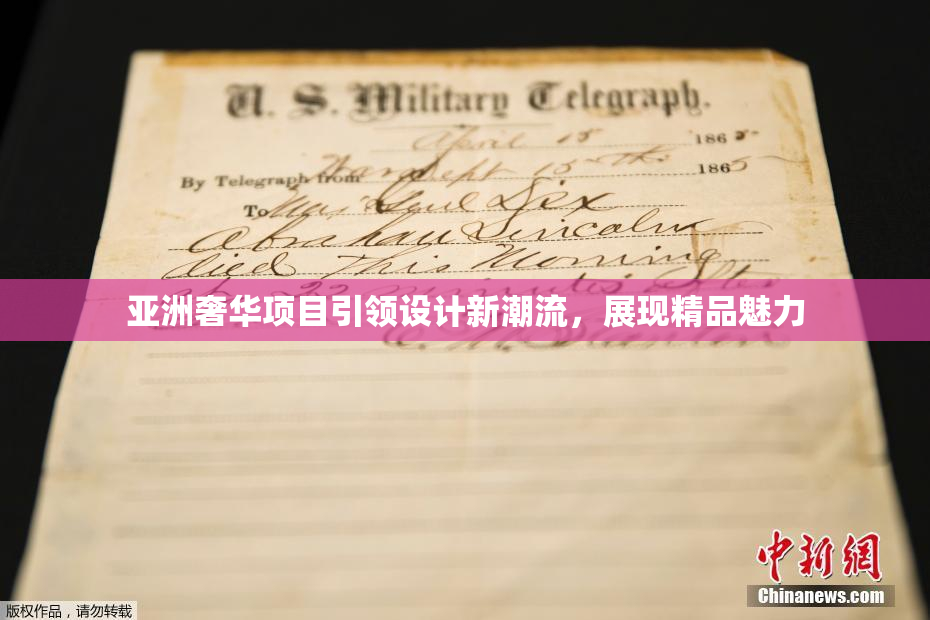 U. S. Military Telegraph.
April 15 1865
By Telegraph from War Dept 15th 1865
To Maj Genl Dix
Abraham Lincoln
died This Morning
at 22 minutes after
亚洲奢华项目引领设计新潮流，展现精品魅力
中新网
Chinanews.com
版权作品，请勿转载